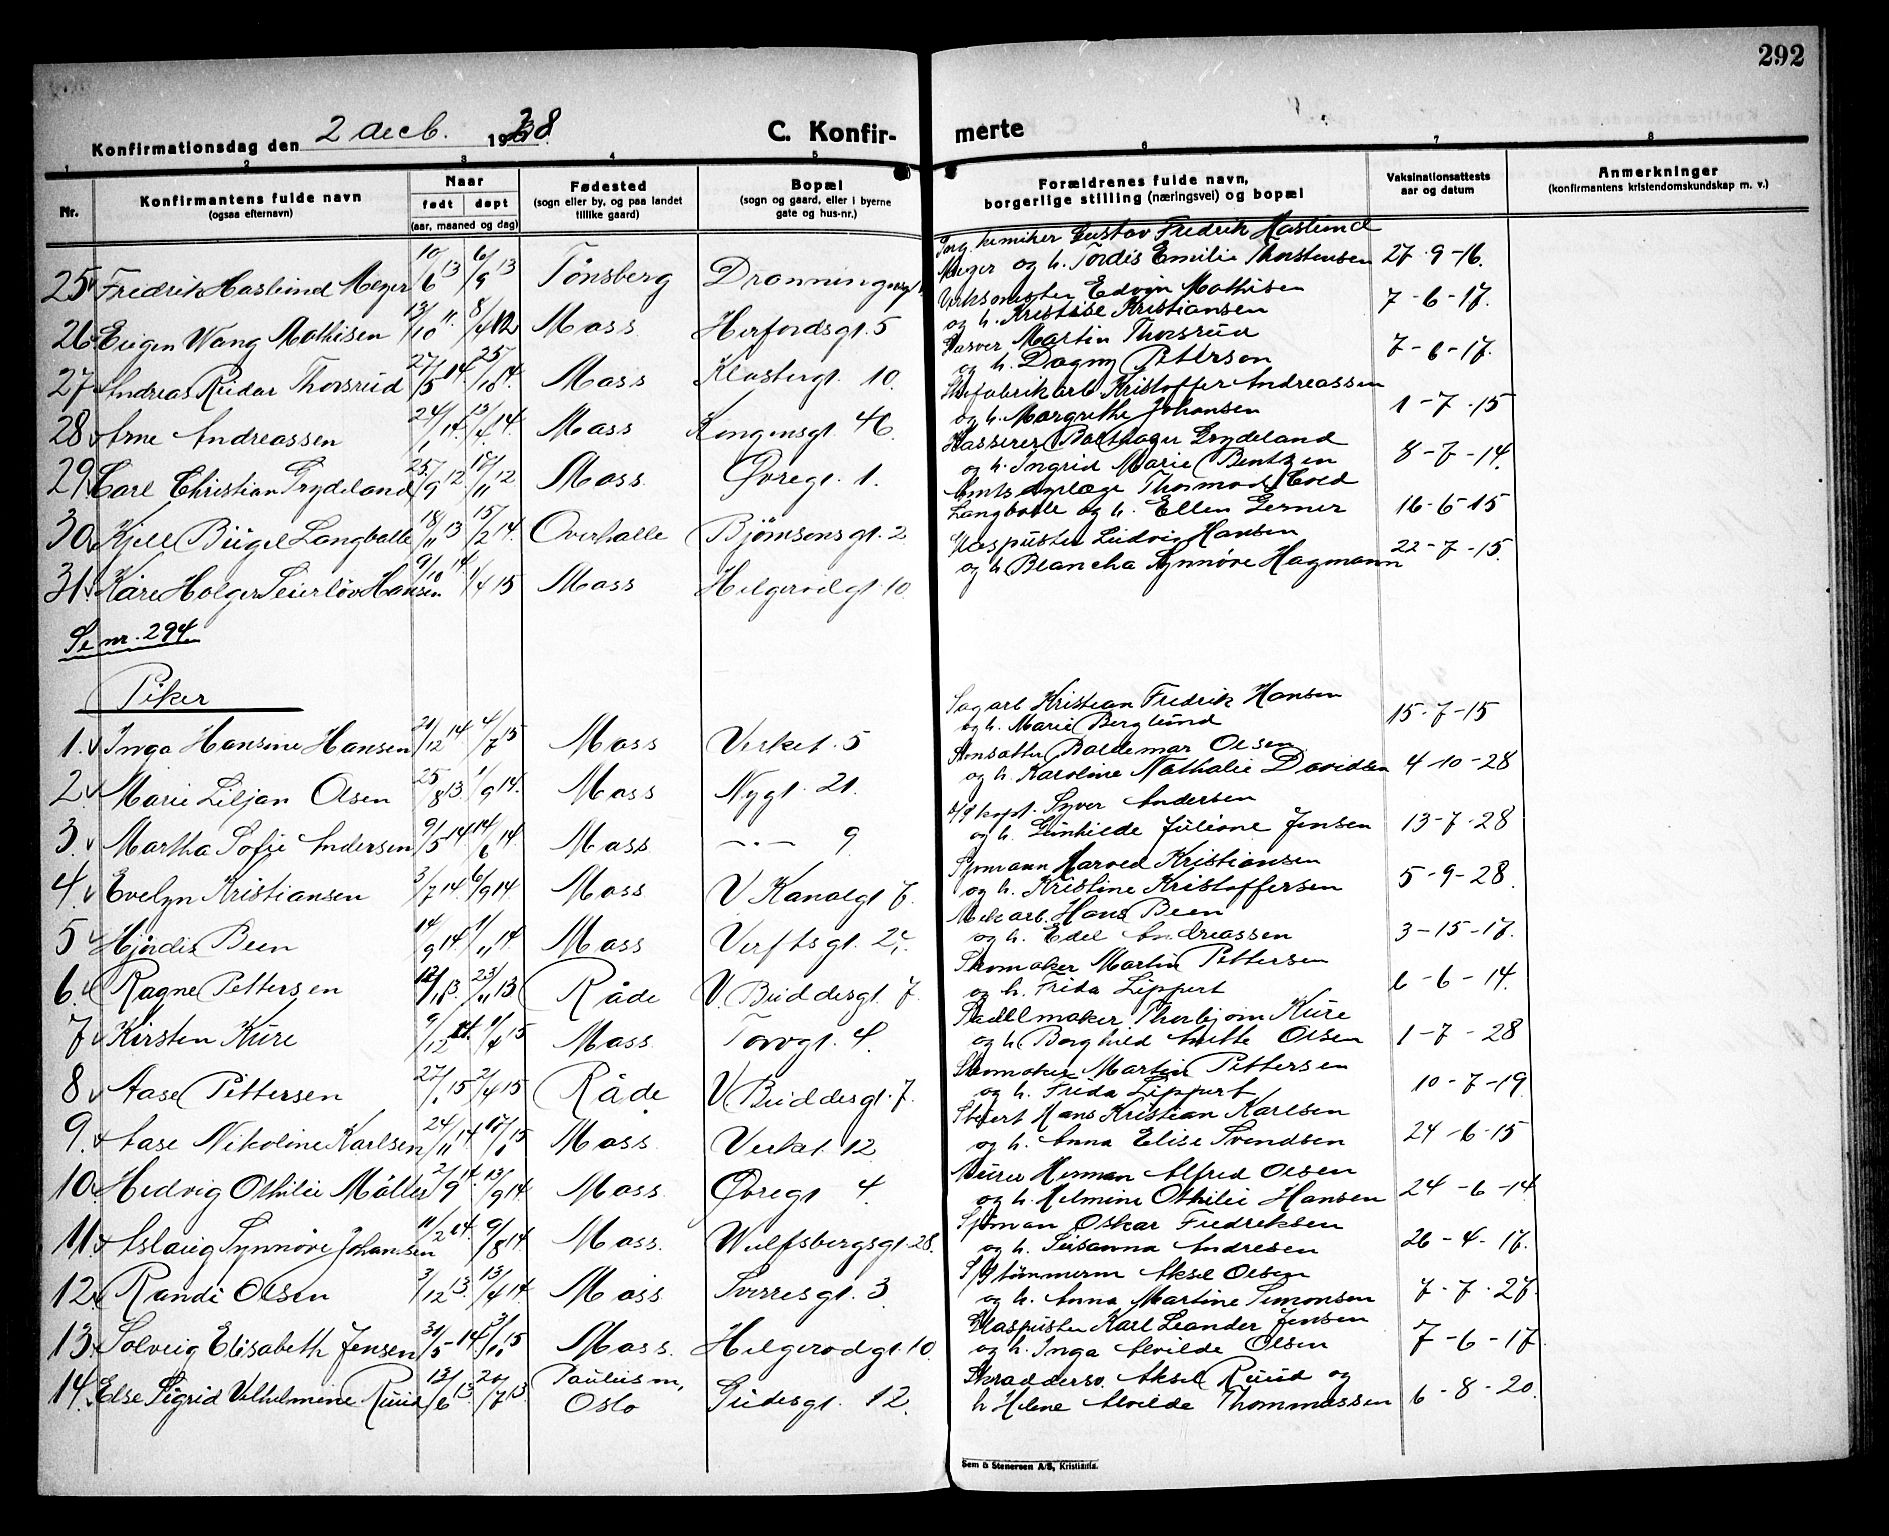 292
Konfirmationsdag den 2 decb. 1928.
C. Konfirmerte
1 2 3 4 5 6 7 8
Nr.
Konfirmantens fulde navn
(ogsaa efternavn)
Naar
født døpt
(aar, maaned og dag)
Fødested
(sogn eller by, og paa landet
tillike gaard)
Bopæl
(sogn og gaard, eller i byerne
gate og hus-nr.)
Forældrenes fulde navn,
borgerlige stilling (næringsvei) og bopæl
Vaksinationsattests
aar og datum
Anmerkninger
(konfirmantens kristendomskundskap m. v.)
25 Fredrik Haslund Meyer 10/6 13 6/9 13 Tönsberg Ing. kemiker Gustav Fredrik Haslund
Meyer og h. Tordis Emilie Thorstensen 27-9-16.
26 Eugen Wang Mathisen 13/10 11. 8/4 12 Moss Herfordsgt. 5 Verksmester Edvin Mathisen
og h. Kristine Kristiansen 7-6-17.
27 Andreas Reidar Thorsrud 27/5 14. 25/10 14. Moss Klostergt. 10. Garver Martin Thorsrud
og h. Dagny Pettersen 7-6-17.
28 Arne Andreassen 24/1 14. 13/4 14. Moss Kongensgt. 46. Kristoffer Andreassen
og h. Margrethe Johansen 1-7-15
29 Carl Christian Grydeland 25/9 12. 17/11 12 Moss Øvregt. 1. Kasserer Grydeland
og h. Ingrid Marie Bentzen 8-7-14.
30 Kjell Bügel Langballe 18/11 13 15/2 14. Overhalle Bjørnsonsgt. 2 Thormod Cold
Langballe og h. Ellen Gerner 16-6-15
31. Kåre Holger Seierløv Hansen 9/10 14. 1/4 15 Moss Helgerødgt. 10 Glaspuster Ludvig Hansen
og h. Blancha Synnøve Hagmann 22-7-15.
Se nr. 294
Piker
1. Inga Hansine Hansen 21/12 14. 4/7 15 Moss Verket. 5 Sagarb. Kristian Fredrik Hansen
og h. Marie Berglund 15-7-15
2 Marie Liljan Olsen 25/8 13. 1/9 14. Moss Nygt. 21. Valdemar Olsen
og h. Karoline Nathalie Davidsen 4-10-28
3. Martha Sofie Andersen 9/5 14. 14/6 14. Moss -"- 9 Syver Andersen
og h. Gunhilde Juliane Jensen 13-7-28
4. Evelyn Kristiansen 3/7 14. 6/9 14 Moss V Kanalgt 7. Sjømann Harved Kristiansen
og h. Kristine Kristoffersen 5-9-28.
5 Hjördis Been 14/9 14. 1/11 14. Moss Verftsgt. Hans Been
og h. Edel Andreassen 3-15-17.
6. Ragne Pettersen 12/10 13. 23/11 13 Råde V. Buddesgt. 7. Skomaker Martin Pettersen
og h. Frida Lippert 6-6-14.
7 Kirsten Kure 9/12 14. 4 15 Moss Torvgt. 4. Thorbjørn Kure
og h. Borghild Anette Olsen 1-7-28
8 Aase Pettersen 27/1 15 2/4 15 Råde V Buddesgt. 7. Skomaker Martin Pettersen
og h. Frida Lippert 10-7-19
9. Aase Nikoline Karlsen 24/11 14. 17/1 15 Moss Verket 12 Hans Kristian Karlsen
og h. Anna Elise Svendsen 24-6-15
10 Hedvig Othilie Möller 2/9 14. 13/9 14 Moss. Øvregt 4. Murer Herman Alfred Olsen
og h. Helmine Othilie Hansen 24-6-14
11. Aslaug Synnøve Johansen 11/2 14. 9/8 14. Moss. Wulfsbergsgt. 28. Sjöman Oskar Fredriksen
og h. Susanna Andresen 26-4-17.
12. Randi Olsen 3/12 13. 13/4 14. Moss Sverresgt. 3. Aksel Olsen
og h. Anna Martine Simonsen 7-7-27.
13. Solveig Elisabeth Jensen 31/5 14. 15 Moss. Helgerødgt. 10. Glaspuster Karl Leander Jensen
og h. Inga Alvilde Olsen 7-6-17.
14. Else Sigrid Vilhelmine Ruud 13/6 13. 20/7 13. Paulus m,
Oslo Gudesgt. 12. Skraddersv. Aksel Ruud og
h Helene Alvilde Thommassen 6-8-20.
Sem & Stenersen A/S, Kristiania.